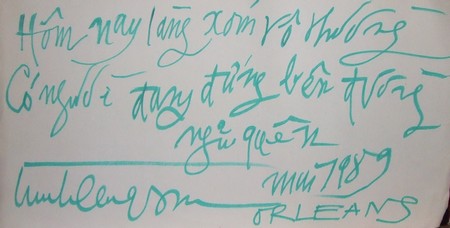 Hôm nay làng xóm vô thường
Có người đang đứng bên đường
ngủ quên
mai 1989
ORLEANS